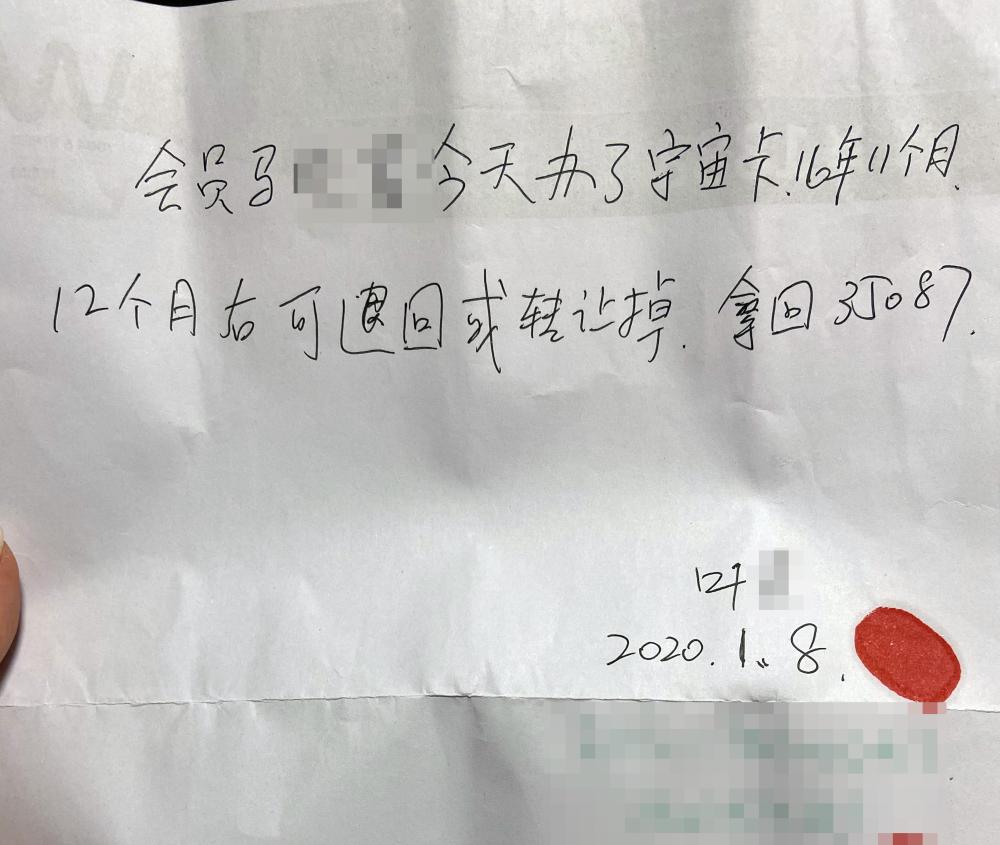 会员马 今天办了宇宙卡.16年11个月.
12个月后可退回或转让掉. 拿回35087.
叶
2020.1.8.